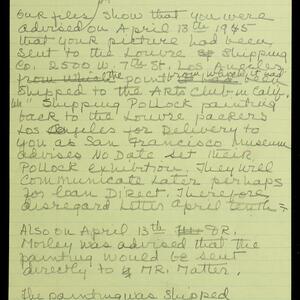 Our files show that you were
advised on April 13th 1945
that your picture had been
sent to the Louvre Shipping
Co. 2500 W. 7th St. Los Angeles
from which point
shipped to the Arts Club in Calif.
Shipping Pollock painting
back to the Louvre packers
Los Angeles for Delivery to
you as San Francisco museum
advises No Date set their
Pollock exhibition. They will
communicate later perhaps
for loan Direct. Therefore
disregard letter April tenth =
Also on April 13th DR.
Morley was advised that the
painting would be sent
directly to MR. Matter.
The painting was shipped